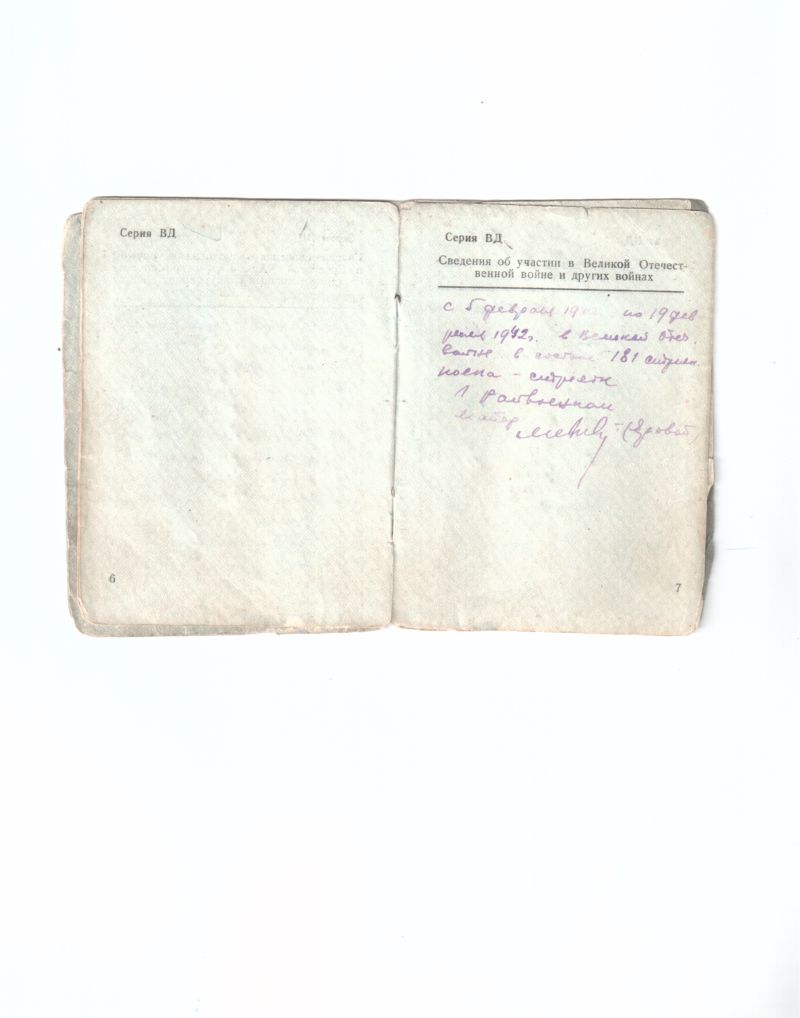 Серия ВД
6
Серия ВД
Сведения об участии в Великой Отечест-
венной войне и других войнах
с 5 февраля 19 по 19 фев
раля 1942г. в Великой Отеч.
войне в составе 181 стрелк.
полка - стрелок
райвоенком
майор
7